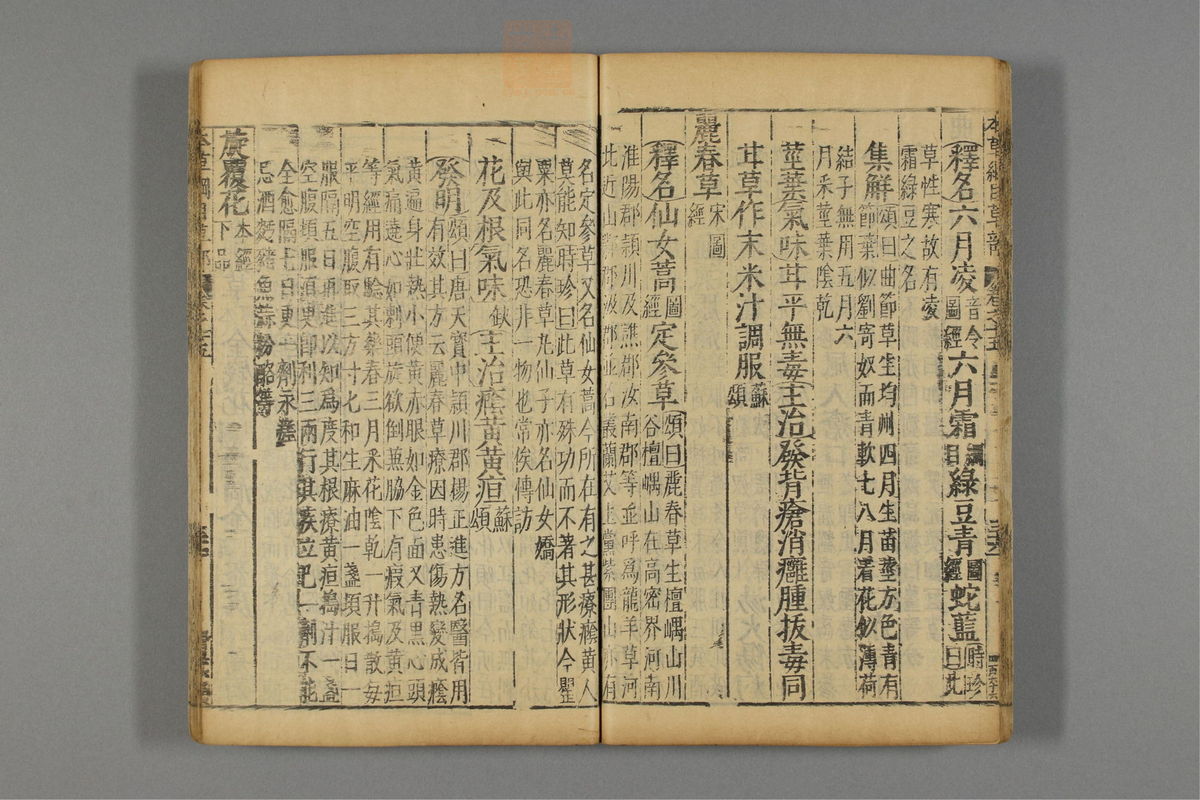 本草綱目草部 卷之十五
釋名六月凌音令圖經六月霜綱目綠豆青圖經蛇藍時珍曰此
草性寒故有凌
霜綠豆之名
集解頌曰曲節草生均州四月生苗莖方色青有
節葉似劉寄奴而青軟七八月着花似薄荷
結子無用五月六
月采莖葉陰乾
莖葉氣味甘平無毒主治發背瘡消癰腫拔毒同
甘草作末米汁調服蘇頌
麗春草宋圖經
釋名仙女蒿圖經定參草頌曰麗春草生檀嵎山川
谷檀嵎山在高密界河南
淮陽郡潁川及譙郡汝南郡等並呼為龍羊草河
北近山鄴郡汲郡並名蘭艾上黨紫團山亦有
名定參草又名仙女蒿今所在有之甚療癊黃人
草能知時珍曰此草有殊功而不著其形狀今罌
粟亦名麗春草九仙子亦名仙女嬌
與此同名恐非一物也當俟傳訪
花及根氣味缺主治癊黃黃疸蘇頌
發明頌曰唐天寶中潁川郡楊正進方名醫皆用
有效其方云麗春草療因時患傷熱變成癊
黃遍身壯熱小便黃赤眼如金色面又青黑心頭
氣痛遶心如刺頭旋欲倒兼脇下有瘕氣及黃疸
等經用有驗其藥春三月采花陰乾一升搗散每
平明空腹取三方寸匕和生麻油一盞頓服日一
服隔五日再進以知為度其根療黃疸搗汁一盞
空腹頓服須臾即利三兩行其疾立已一劑不能
全愈隔七日更一劑永瘥
忌酒麪豬魚蒜粉酪等
旋覆花本經下品
本草綱目草部 卷之十五